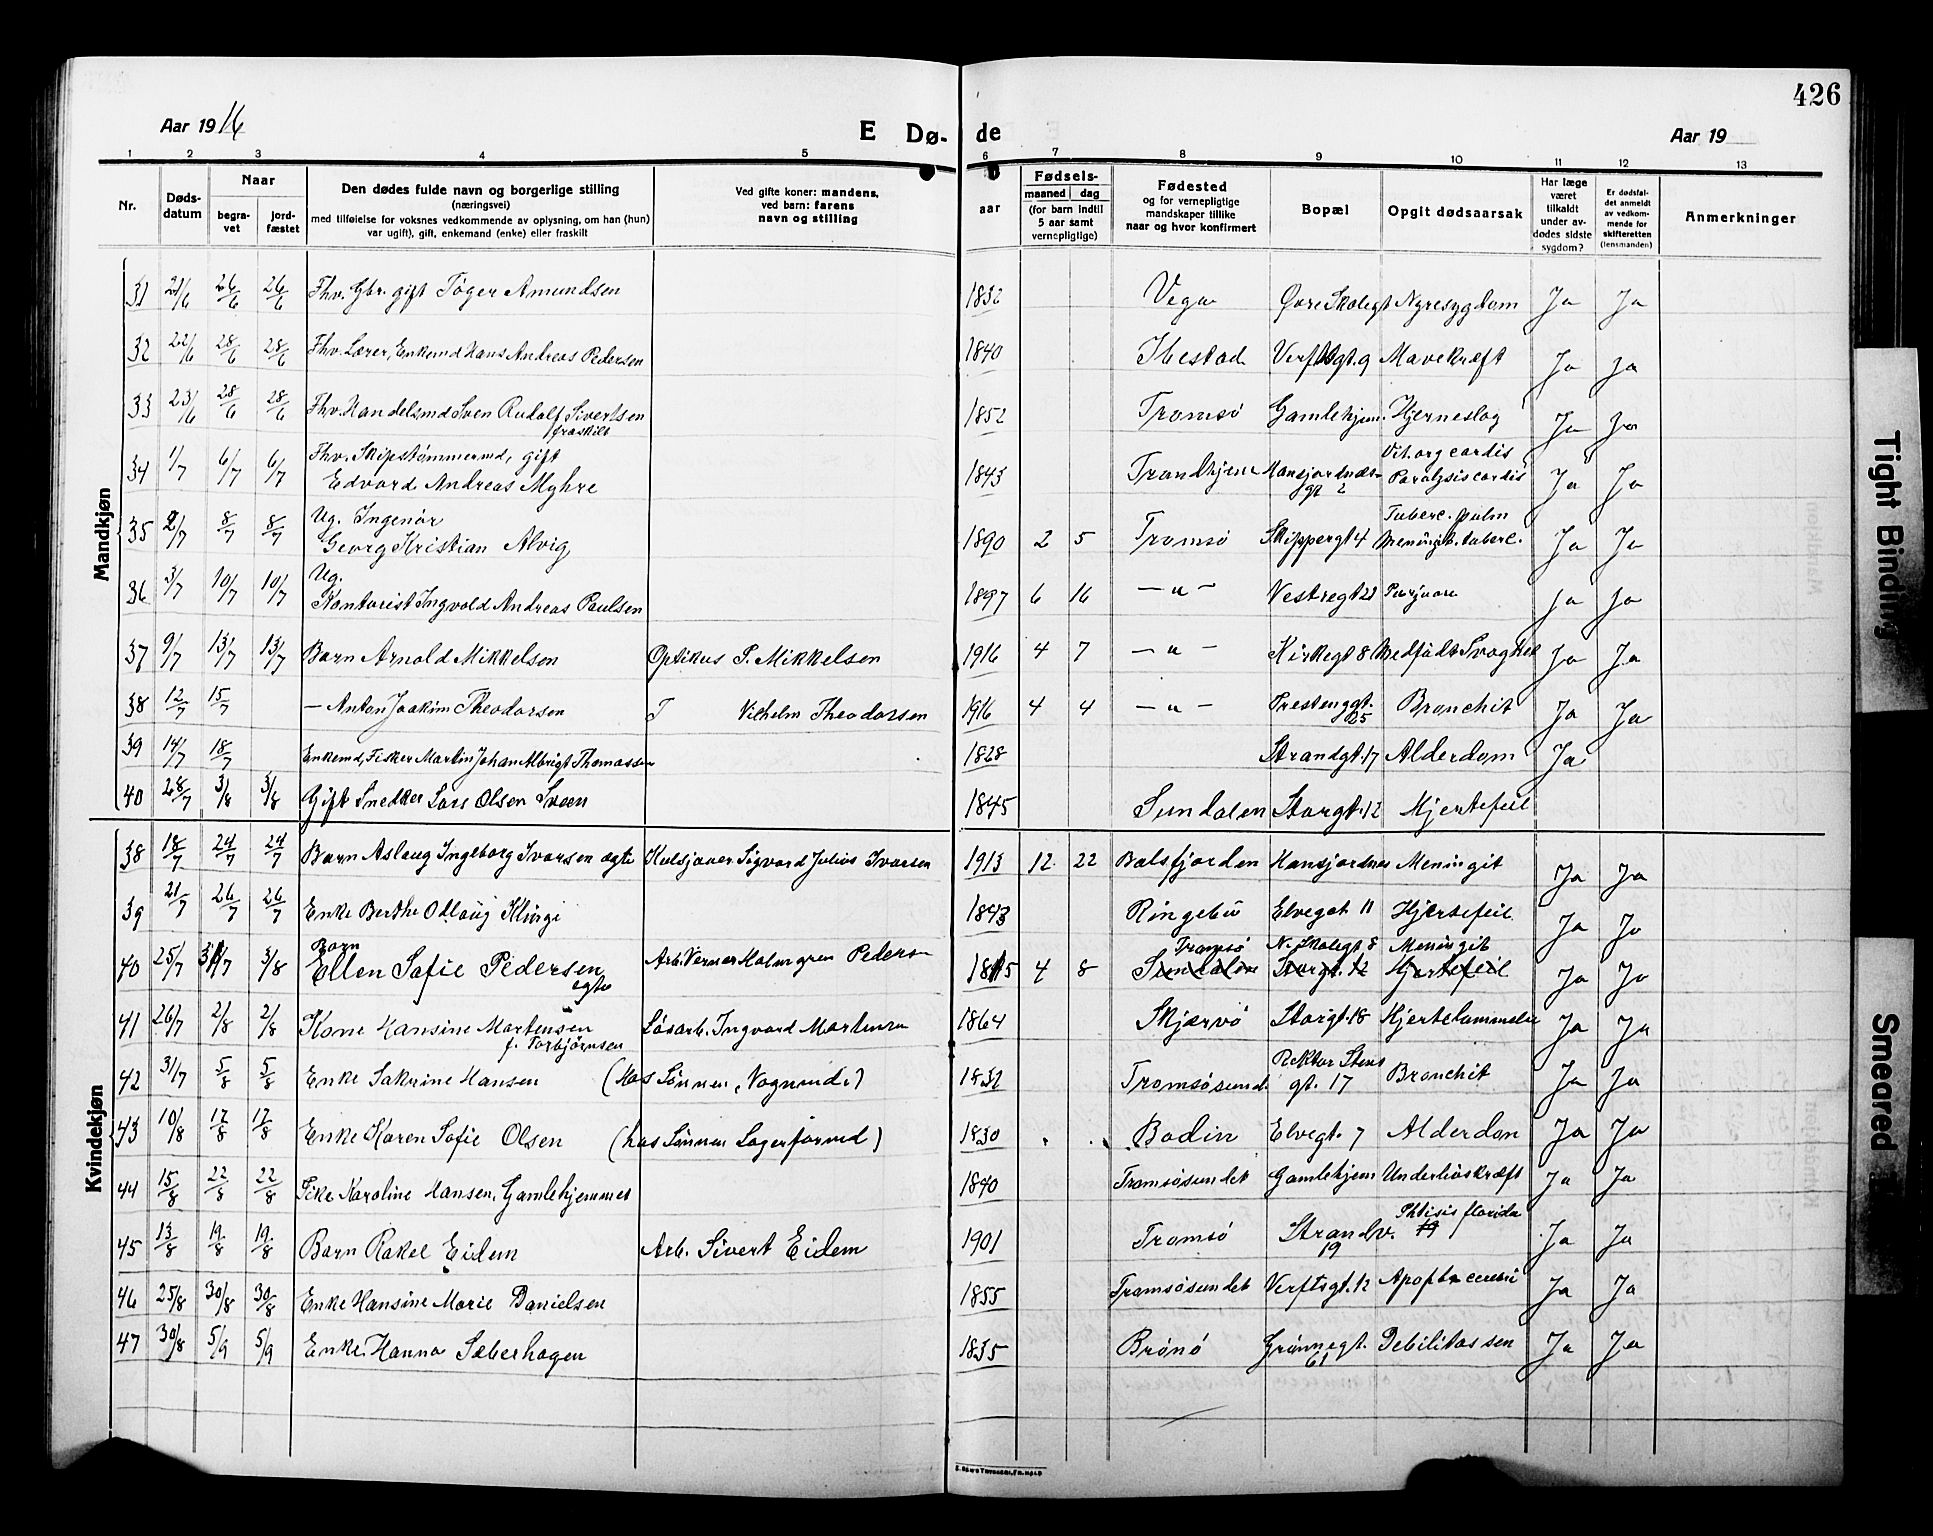 426
Aar 1916 E Dø- de Aar 19
1 2 3 4 5 6 7 8 9 10 11 12 13
Nr. Døds-datum Naar begra-vet jord-fæstet Den dødes fulde navn og borgerlige stilling (næringsvei) med tilføielse for voksnes vedkommende av oplysning, om han (hun) var ugift), gift, enkemand (enke) eller fraskilt Ved gifte koner: mandens, ved barn: farens navn og stilling aar Fødsels- maaned dag (for barn indtil 5 aar samt vernepligtige) Fødested og for vernepligtige mandskaper tillike naar og hvor konfirmert Bopæl Opgit dødsaarsak Har læge været tilkaldt under av-dødes sidste sygdom? Er dødsfal-det anmeldt av vedkom-mende for skifteretten (lensmanden) Anmerkninger
Mandkjøn
31 21/6 26/6 26/6 Fhv. Gbr. gift Töger Amundsen 1832 Vega Øvre Skolegt Nyresygdom Ja Ja
32 22/6 28/6 28/6 Fhv. Lærer, Enkemd Hans Andreas Pedersen 1840 Ibestad Verftsgt. 9 Mavekræft Ja Ja
33 23/6 28/6 28/6 Fhv. Handelsmd Sven Rudolf Sivertsen fraskilt 1852 Tromsø Gamlehjem. Hjerneslag Ja Ja
34 1/7 6/7 6/7 Fhv. Skipstømmermd, gift
Edvard Andreas Myhre 1843 Trondhjem Hansjordnæs-gt 2 Vit. org cordis Paralysis cordis Ja Ja
35 2/7 8/7 8/7 Ug. Ingenør
Georg Kristian Alvig 1890 2 5 Tromsø Skippergt 4 Tuberc. pulm Meningit. tuberc. Ja Ja
36 3/7 10/7 10/7 Ug.
Kontorist Ingvold Andreas Paulsen 1897 6 16 — " — Vestregt 22 Ja Ja
37 9/7 13/7 13/7 Barn Arnold Mikkelsen Optikus P. Mikkelsen 1916 4 7 — " — Kirkegt 8 Medfødt Svaghet Ja Ja
38 12/7 15/7 — Anton Joakim Theodorsen T Vilhelm Theodorsen 1916 4 4 — " — Prestenggt. 25 Bronchit Ja Ja
39 14/7 18/7 Enkemd, Fisker Martin Johan Albrigt Thomassen 1828 Strandgt. 17 Alderdom Ja
40 28/7 3/8 3/8 Gift Snedker Lars Olsen Sveen 1845 Sundalen Storgt. 12 Hjertefeil
Kvindekjøn
38 18/7 24/7 24/7 Barn Aslaug Ingeborg Ivarsen ægte Kulsjauer Sigvard Julius Ivarsen 1913 12. 22 Balsfjorden Hansjordnes Meningit Ja Ja
39 21/7 26/7 26/7 Enke Berthe Odlaug Klingi 1843 Ringebu Elvegat 11 Hjertefeil Ja Ja
40 25/7 31/7 3/8 Barn
Ellen Sofie Pedersen ægte Arb. Verner Holmgren Pedersen 1815 4 8 Tromsø N. Skolegt 8 Meningit
Sundalen Storgt. 12 Hjertefeil Ja Ja
41 26/7 2/8 2/8 Kone Hansine Martensen
f. Torbjørnsen Løsarb. Ingvard Martensen 1864 Skjærvø Storgt. 18 Hjertelammelse Ja Ja
42 31/7 5/8 5/8 Enke Sakrine Hansen (hos Sønnen, Vognmd.) 1832 Tromsøsund. Rektor Stens gt. 17 Bronchit Ja Ja
43 10/8 17/8 17/8 Enke Karen Sofie Olsen (hos Sønnen Lagerformd) 1830 Bodin Elvegt. 7 Alderdom Ja Ja
44 15/8 22/8 22/8 Pike Karoline Hansen, Gamlehjemmet 1840 Tromsøsundet Gamlehjem Underlivskræft Ja Ja
45 13/8 19/8 19/8 Barn Rakel Eidem Arb. Sivert Eidem 1901 Tromsø Strandv. 19 Phtisis florida 19 Ja Ja
46 25/8 30/8 30/8 Enke Hansine Marie Danielsen 1855 Tromsøsundet Verftsgt. 12 cerebri Ja Ja
47 30/8 5/9 5/9 Enke Hanna Sæberhagen 1835 Brønø Grønnegt. 61 Debilitas sen Ja Ja
Tight Binding
Smeared